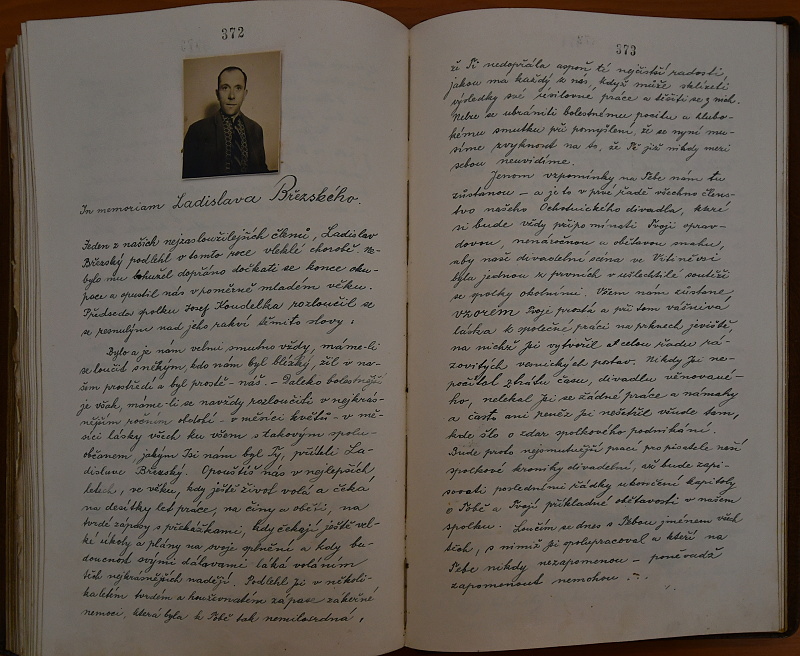 372
In memoriam Ladislava Březského.
Jeden z našich nejzasloužilejších členů, Ladislav
Březský podlehl v tomto roce vleklé chorobě. Ne-
bylo mu bohužel dopřáno dočkati se konce oku-
pace a opustil nás v poměrně mladém věku.
Předseda spolku Josef Koudelka rozloučil se
se zesnulým nad jeho rakví těmito slovy:
Bylo a je nám velmi smutno vždy, máme-li
se loučit s někým, kdo nám byl blízký, žil v na-
šem prostředí a byl prostě - náš. - Daleko bolestnější
je však, máme-li se navždy rozloučiti v nejkrás-
nějším ročním období - v měsíci květů - v mě-
síci lásky všech ku všem s takovým spolu-
občanem, jakým jsi nám byl Ty, příteli La-
dislave Březský. Opouštíš nás v nejlepších
letech, ve věku, kdy ještě život volá a čeká
na desítky let práce, na činy a oběti, na
tvrdé zápasy s překážkami, kdy čekají ještě vel-
ké úkoly a plány na svoje splnění a kdy bu-
doucnost svými dálavami láká voláním
těch nejkrásnějších nadějí. Podlehl jsi v několi-
kaletém tvrdém a houževnatém zápase zákeřné
nemoci, která byla k Tobě tak nemilosrdná,
373
že Ti nedopřála aspoň té nejčistší radosti,
jakou má každý z nás, když může sklízeti
výsledky své usilovné práce a těšiti se z nich.
Nelze se ubrániti bolestnému pocitu a hlubo-
kému smutku při pomyšlení, že se nyní mu-
síme zvyknout na to, že Tě již nikdy mezi
sebou neuvidíme.
Jenom vzpomínky na Tebe nám tu
zůstanou - a je to v prvé řadě všechno člens-
tvo našeho Ochotnického divadla, které
si bude vždy připomínati Tvoji oprav-
dovou, nenáročnou a obětavou snahu,
aby naše divadelní scéna ve Vitiněvsi
byla jednou z prvních v ušlechtilé soutěži
se spolky okolními. Všem nám zůstane
vzorem Tvoje prostá a při tom vášnivá
láska k společné práci na prknech jeviště,
na nichž jsi vytvořil celou řadu rá-
zovitých komických postav. Nikdy jsi ne-
počítal ztrátu času, divadlu věnované-
ho, nelekal jsi se žádné práce a námahy
a často ani peněz jsi nešetřil všude tam,
kde šlo o zdar spolkového podnikání.
Bude proto nejsmutnější prací pro pisatele naší
spolkové kroniky divadelní, až bude zapi-
sovati posledními řádky ukončení kapitoly
o Tobě a Tvojí příkladné obětavosti v našem
spolku. Loučím se dnes s Tebou jménem všech
těch, s nimiž jsi spolupracoval a kteří na
Tebe nikdy nezapomenou - poněvadž
zapomenout nemohou ...